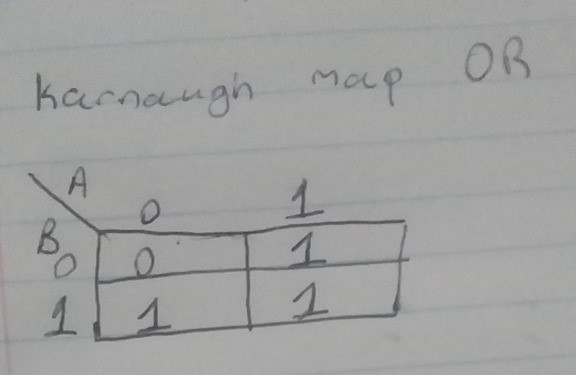 Karnaugh map OR
A
0 1
B
0 0 1
1 1 1